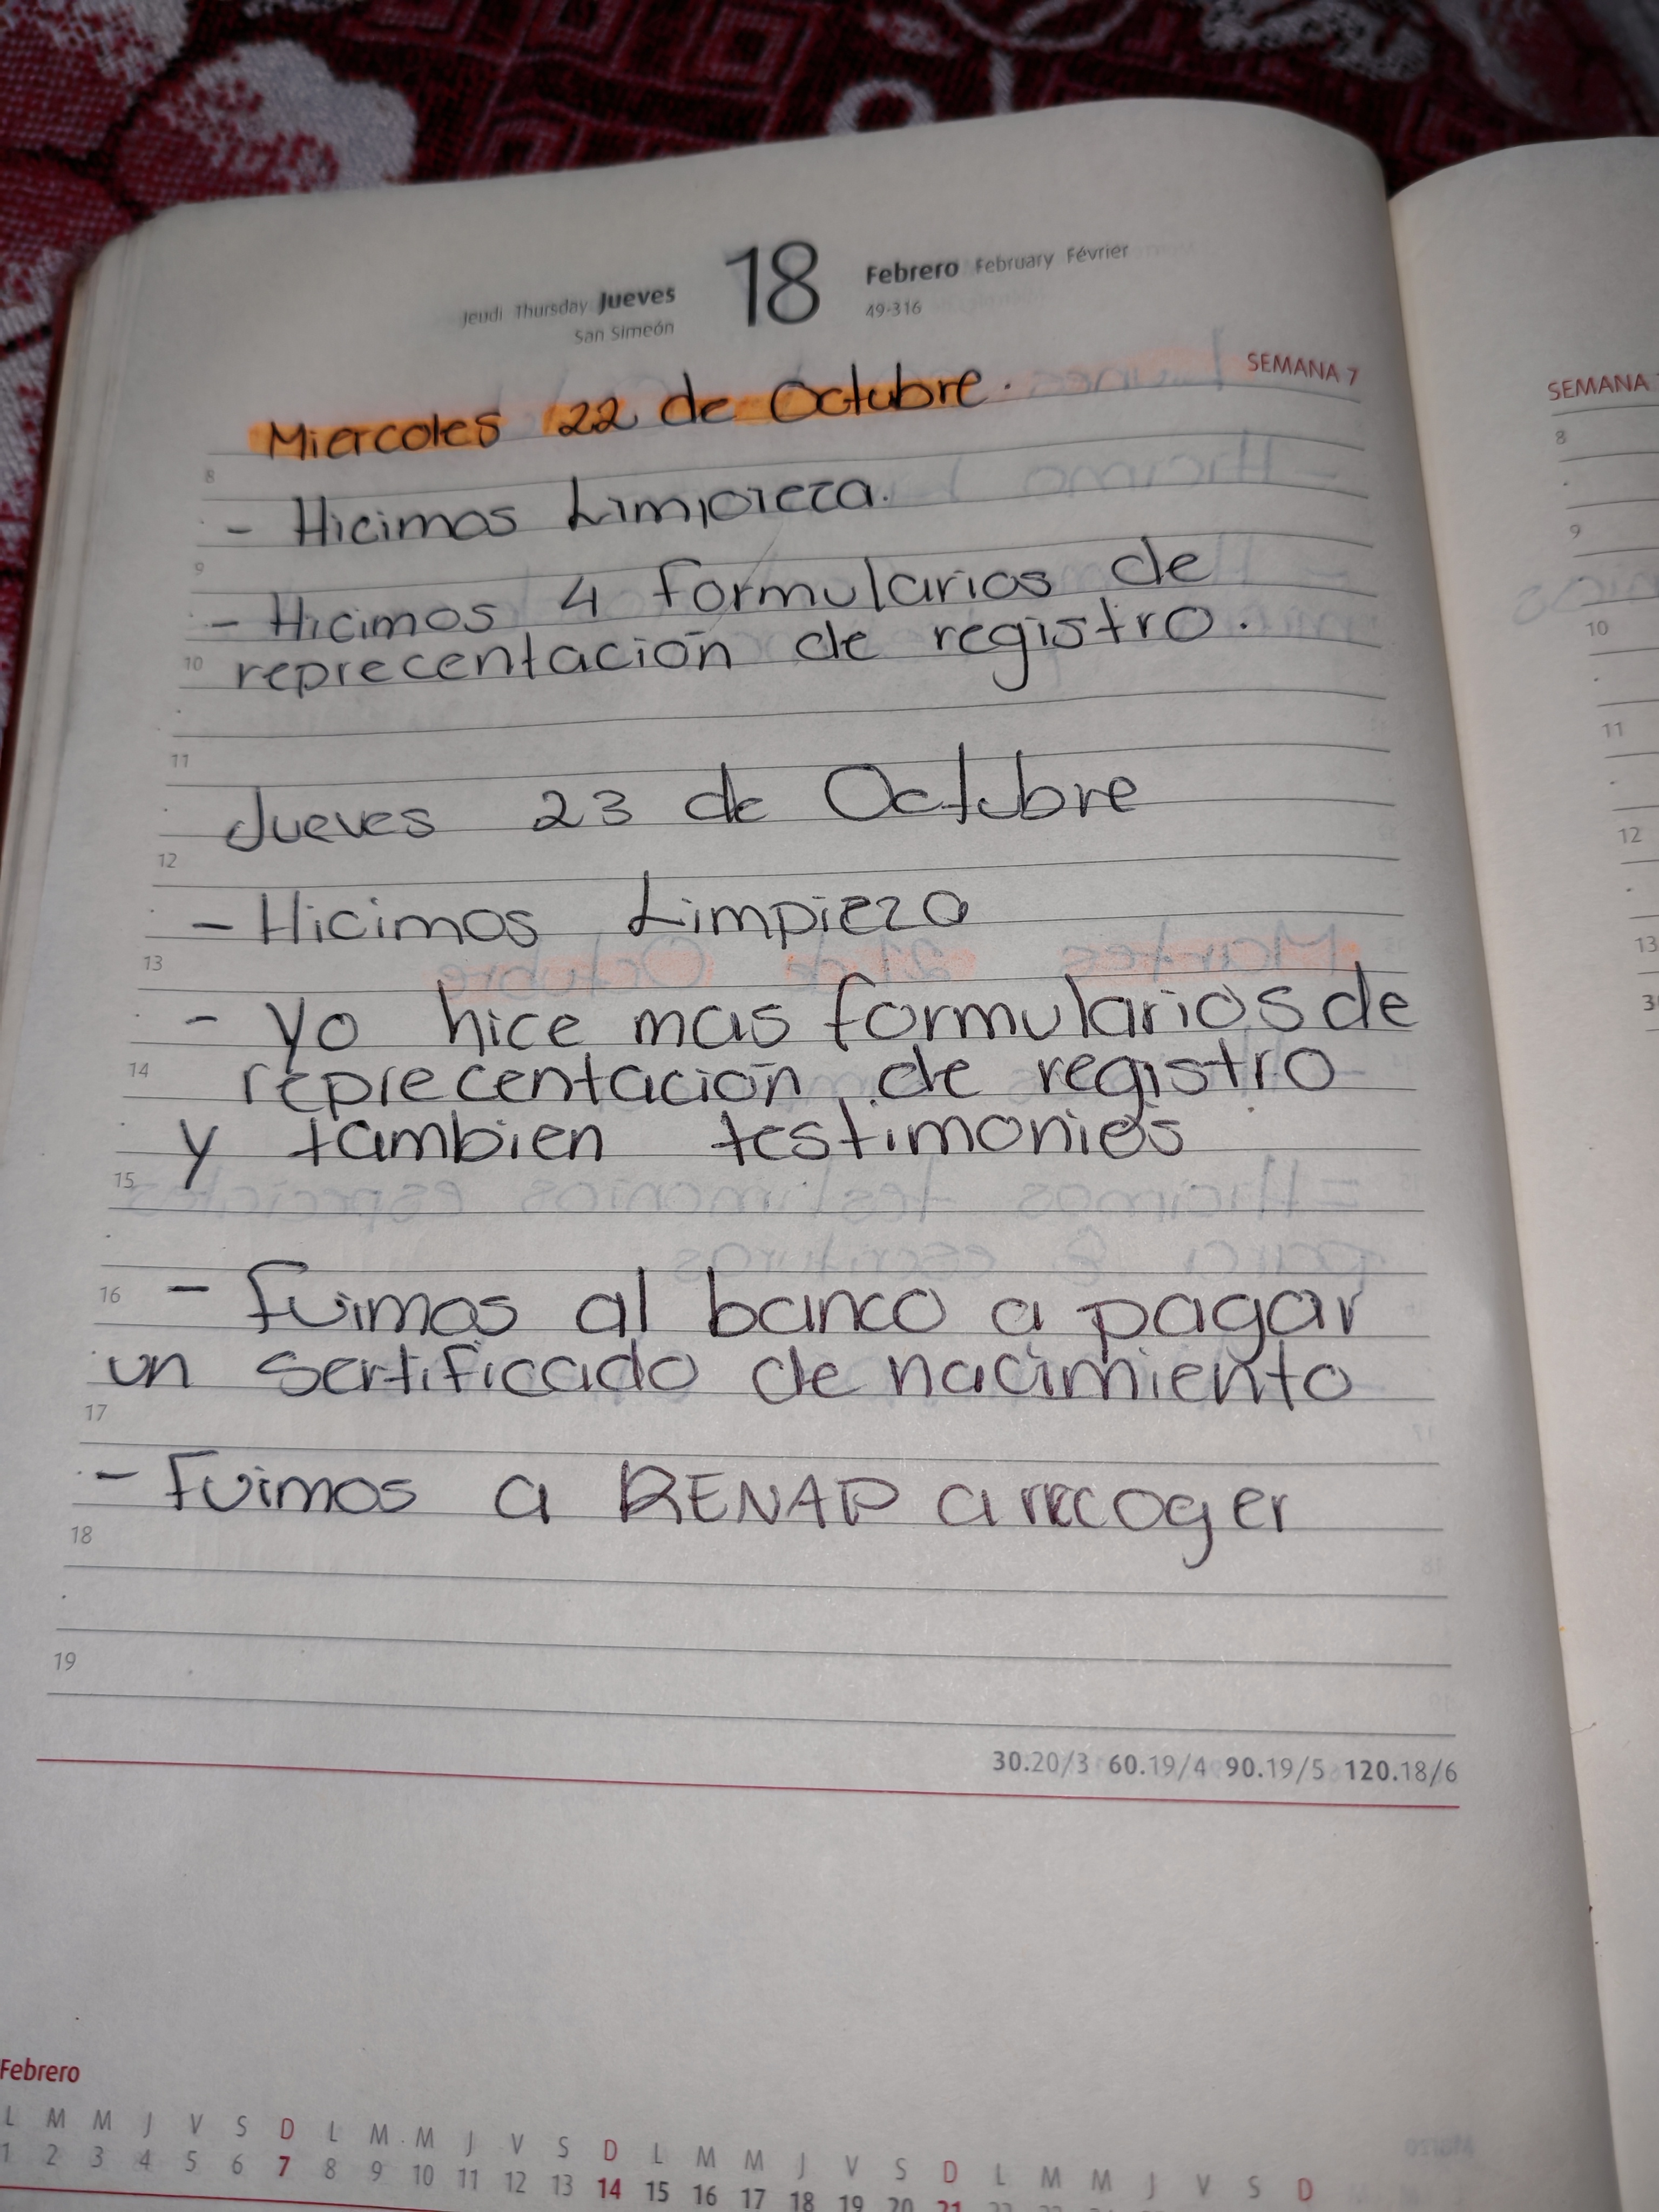 Jeudi Thursday Jueves 18 Febrero February Février
San Simeón 49-316
SEMANA 7
Miercoles 22 de Octubre.
8
- Hicimos Limpieza.
9
- Hicimos 4 formularios de
10 reprecentación de registro.
11
Jueves 23 de Octubre
12
- Hicimos Limpieza
13
- yo hice mas formularios de
14 reprecentación de registro
y tambien testimonios
15
16 - fuimos al banco a pagar
un sertificado de nacimiento
17
- Fuimos a RENAP a recoger
18
19
30.20/3 60.19/4 90.19/5 120.18/6
Febrero
L M M J V S D L M M J V S D L M M J V S D L M M J V S D
1 2 3 4 5 6 7 8 9 10 11 12 13 14 15 16 17 18 19 20 21
SEMANA
8
9
10
11
12
13